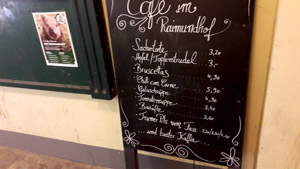 Café im
Raimundhof
Sachertorte 3,20
Apfel/Topfenstrudel 3,-
Bruscettas 4,90
Chili con Carne 5,90
Gulaschsuppe 4,90
Tomatensuppe 3,90
Säfte 2,60
Trumer Pils vom Fass
...und bester Kaffee...